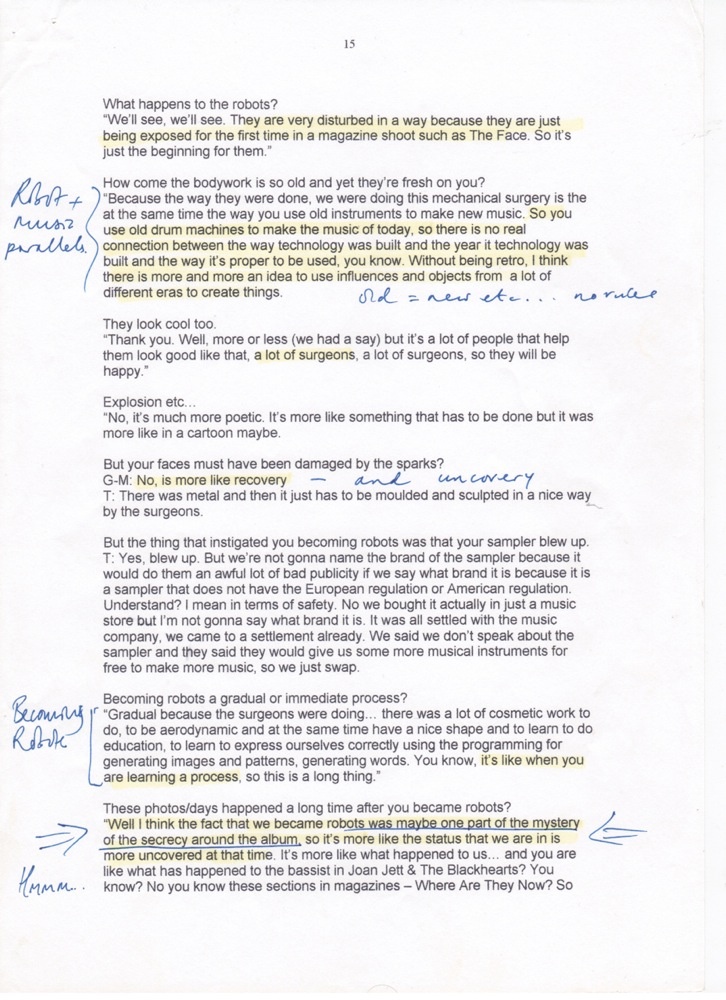 15
What happens to the robots?
“We’ll see, we’ll see. They are very disturbed in a way because they are just
being exposed for the first time in a magazine shoot such as The Face. So it’s
just the beginning for them.”
Robot +
music
parallels.
How come the bodywork is so old and yet they’re fresh on you?
“Because the way they were done, we were doing this mechanical surgery is the
at the same time the way you use old instruments to make new music. So you
use old drum machines to make the music of today, so there is no real
connection between the way technology was built and the year it technology was
built and the way it’s proper to be used, you know. Without being retro, I think
there is more and more an idea to use influences and objects from a lot of
different eras to create things.
old = new etc... no rules
They look cool too.
“Thank you. Well, more or less (we had a say) but it’s a lot of people that help
them look good like that, a lot of surgeons, a lot of surgeons, so they will be
happy.”
Explosion etc…
“No, it’s much more poetic. It’s more like something that has to be done but it was
more like in a cartoon maybe.
But your faces must have been damaged by the sparks?
G-M: No, is more like recovery – and uncovery
T: There was metal and then it just has to be moulded and sculpted in a nice way
by the surgeons.
But the thing that instigated you becoming robots was that your sampler blew up.
T: Yes, blew up. But we’re not gonna name the brand of the sampler because it
would do them an awful lot of bad publicity if we say what brand it is because it is
a sampler that does not have the European regulation or American regulation.
Understand? I mean in terms of safety. No we bought it actually in just a music
store but I’m not gonna say what brand it is. It was all settled with the music
company, we came to a settlement already. We said we don’t speak about the
sampler and they said they would give us some more musical instruments for
free to make more music, so we just swap.
Becoming
Robots
Becoming robots a gradual or immediate process?
“Gradual because the surgeons were doing… there was a lot of cosmetic work to
do, to be aerodynamic and at the same time have a nice shape and to learn to do
education, to learn to express ourselves correctly using the programming for
generating images and patterns, generating words. You know, it’s like when you
are learning a process, so this is a long thing.”
These photos/days happened a long time after you became robots?
“Well I think the fact that we became robots was maybe one part of the mystery
of the secrecy around the album, so it’s more like the status that we are in is
more uncovered at that time. It’s more like what happened to us… and you are
like what has happened to the bassist in Joan Jett & The Blackhearts? You
know? No you know these sections in magazines – Where Are They Now? So
Hmmm...